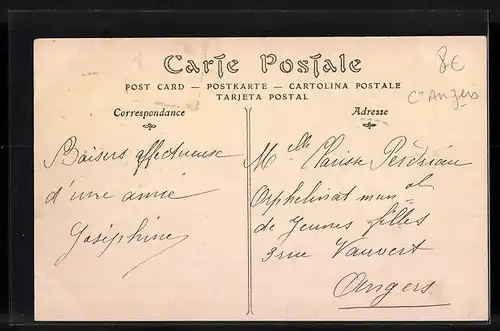 Carte Postale
POST CARD — POSTKARTE — CARTOLINA POSTALE
TARJETA POSTAL
8€
Cᵉ Angers
Correspondance
Adresse
Baisers affectueuse
d'une amie
Joséphine
Melle Clarisse Perdriau
Orphelinat munal
de jeunes filles
3 rue Vauvert
Angers